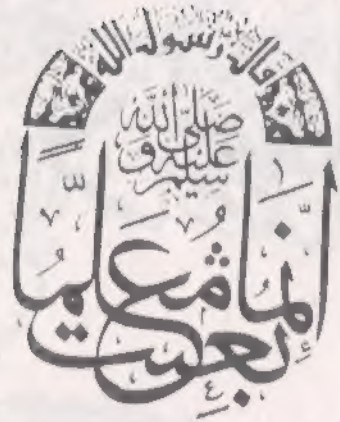 قال رسول الله
صلى الله
عليه و
سلم
إنما بعثت معلما